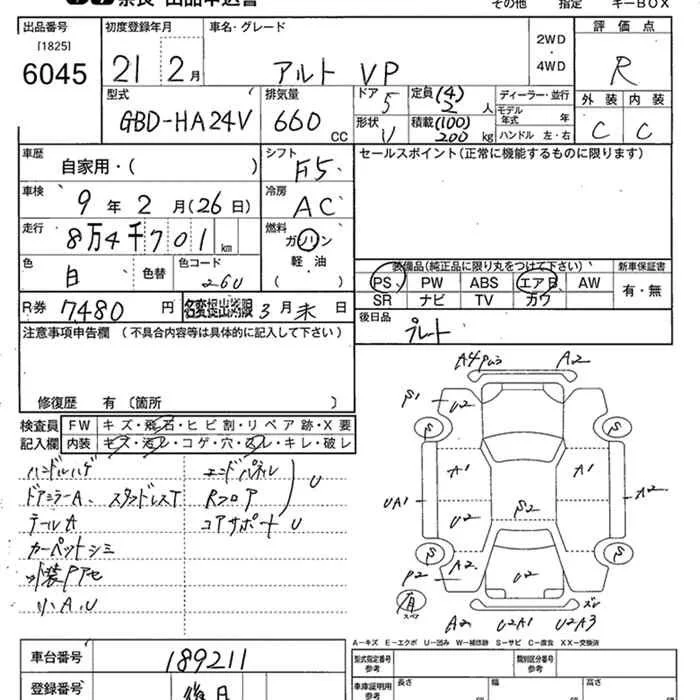 奈良 出品申込書 その他 指定 キーBOX
出品番号 初度登録年月 車名・グレード 評価点
[1825]
6045 21 2月 アルト VP 2WD ・ 4WD R
型式 排気量 ドア 定員(4) ディーラー・並行 外装 内装
GBD-HA24V 660 CC 5 2人 モデル年式 年 C C
形状 V 積載(100) 200kg ハンドル 左・右
車歴 シフト セールスポイント(正常に機能するものに限ります)
自家用・( ) F5
車検 冷房
9年2月(26日) AC
走行 燃料
8万4千701km ガソリン
軽・油
( )
色 色替 色コード 装備品(純正品に限り丸をつけて下さい) 新車保証書
白 26U PS PW ABS エアB AW 有・無
SR ナビ TV カワ
R券 7480円 名変提出期限 3月末日 後日品
プレート
注意事項申告欄 (不具合内容等は具体的に記入して下さい)
修復歴 有 〔箇所 〕
検査員 FW キズ・飛石・ヒビ割・リペア跡・X要
記入欄 内装 キズ・汚レ・コゲ・穴・スレ・キレ・破レ
ハンドルハゲ エンドパネル U
ドアミラーA、スタッドレスT Rフロア
テールA コアサポートU
カーペットシミ
外装アセ
小A.U
A4 A2
S1 U2
S S
A1 A1
UA1 A2
U2 S2
S S
P2 A2 U2
有 スペア
A2 U2A1 U2A3 ズレ
A-キズ E-エクボ U-凹み W-補修跡 S-サビ C-腐食 XX-交換済
車台番号 189211 型式指定番号 参考 類別区分番号 参考
登録番号 後日 車庫証明用 参考 長さ 幅 高さ